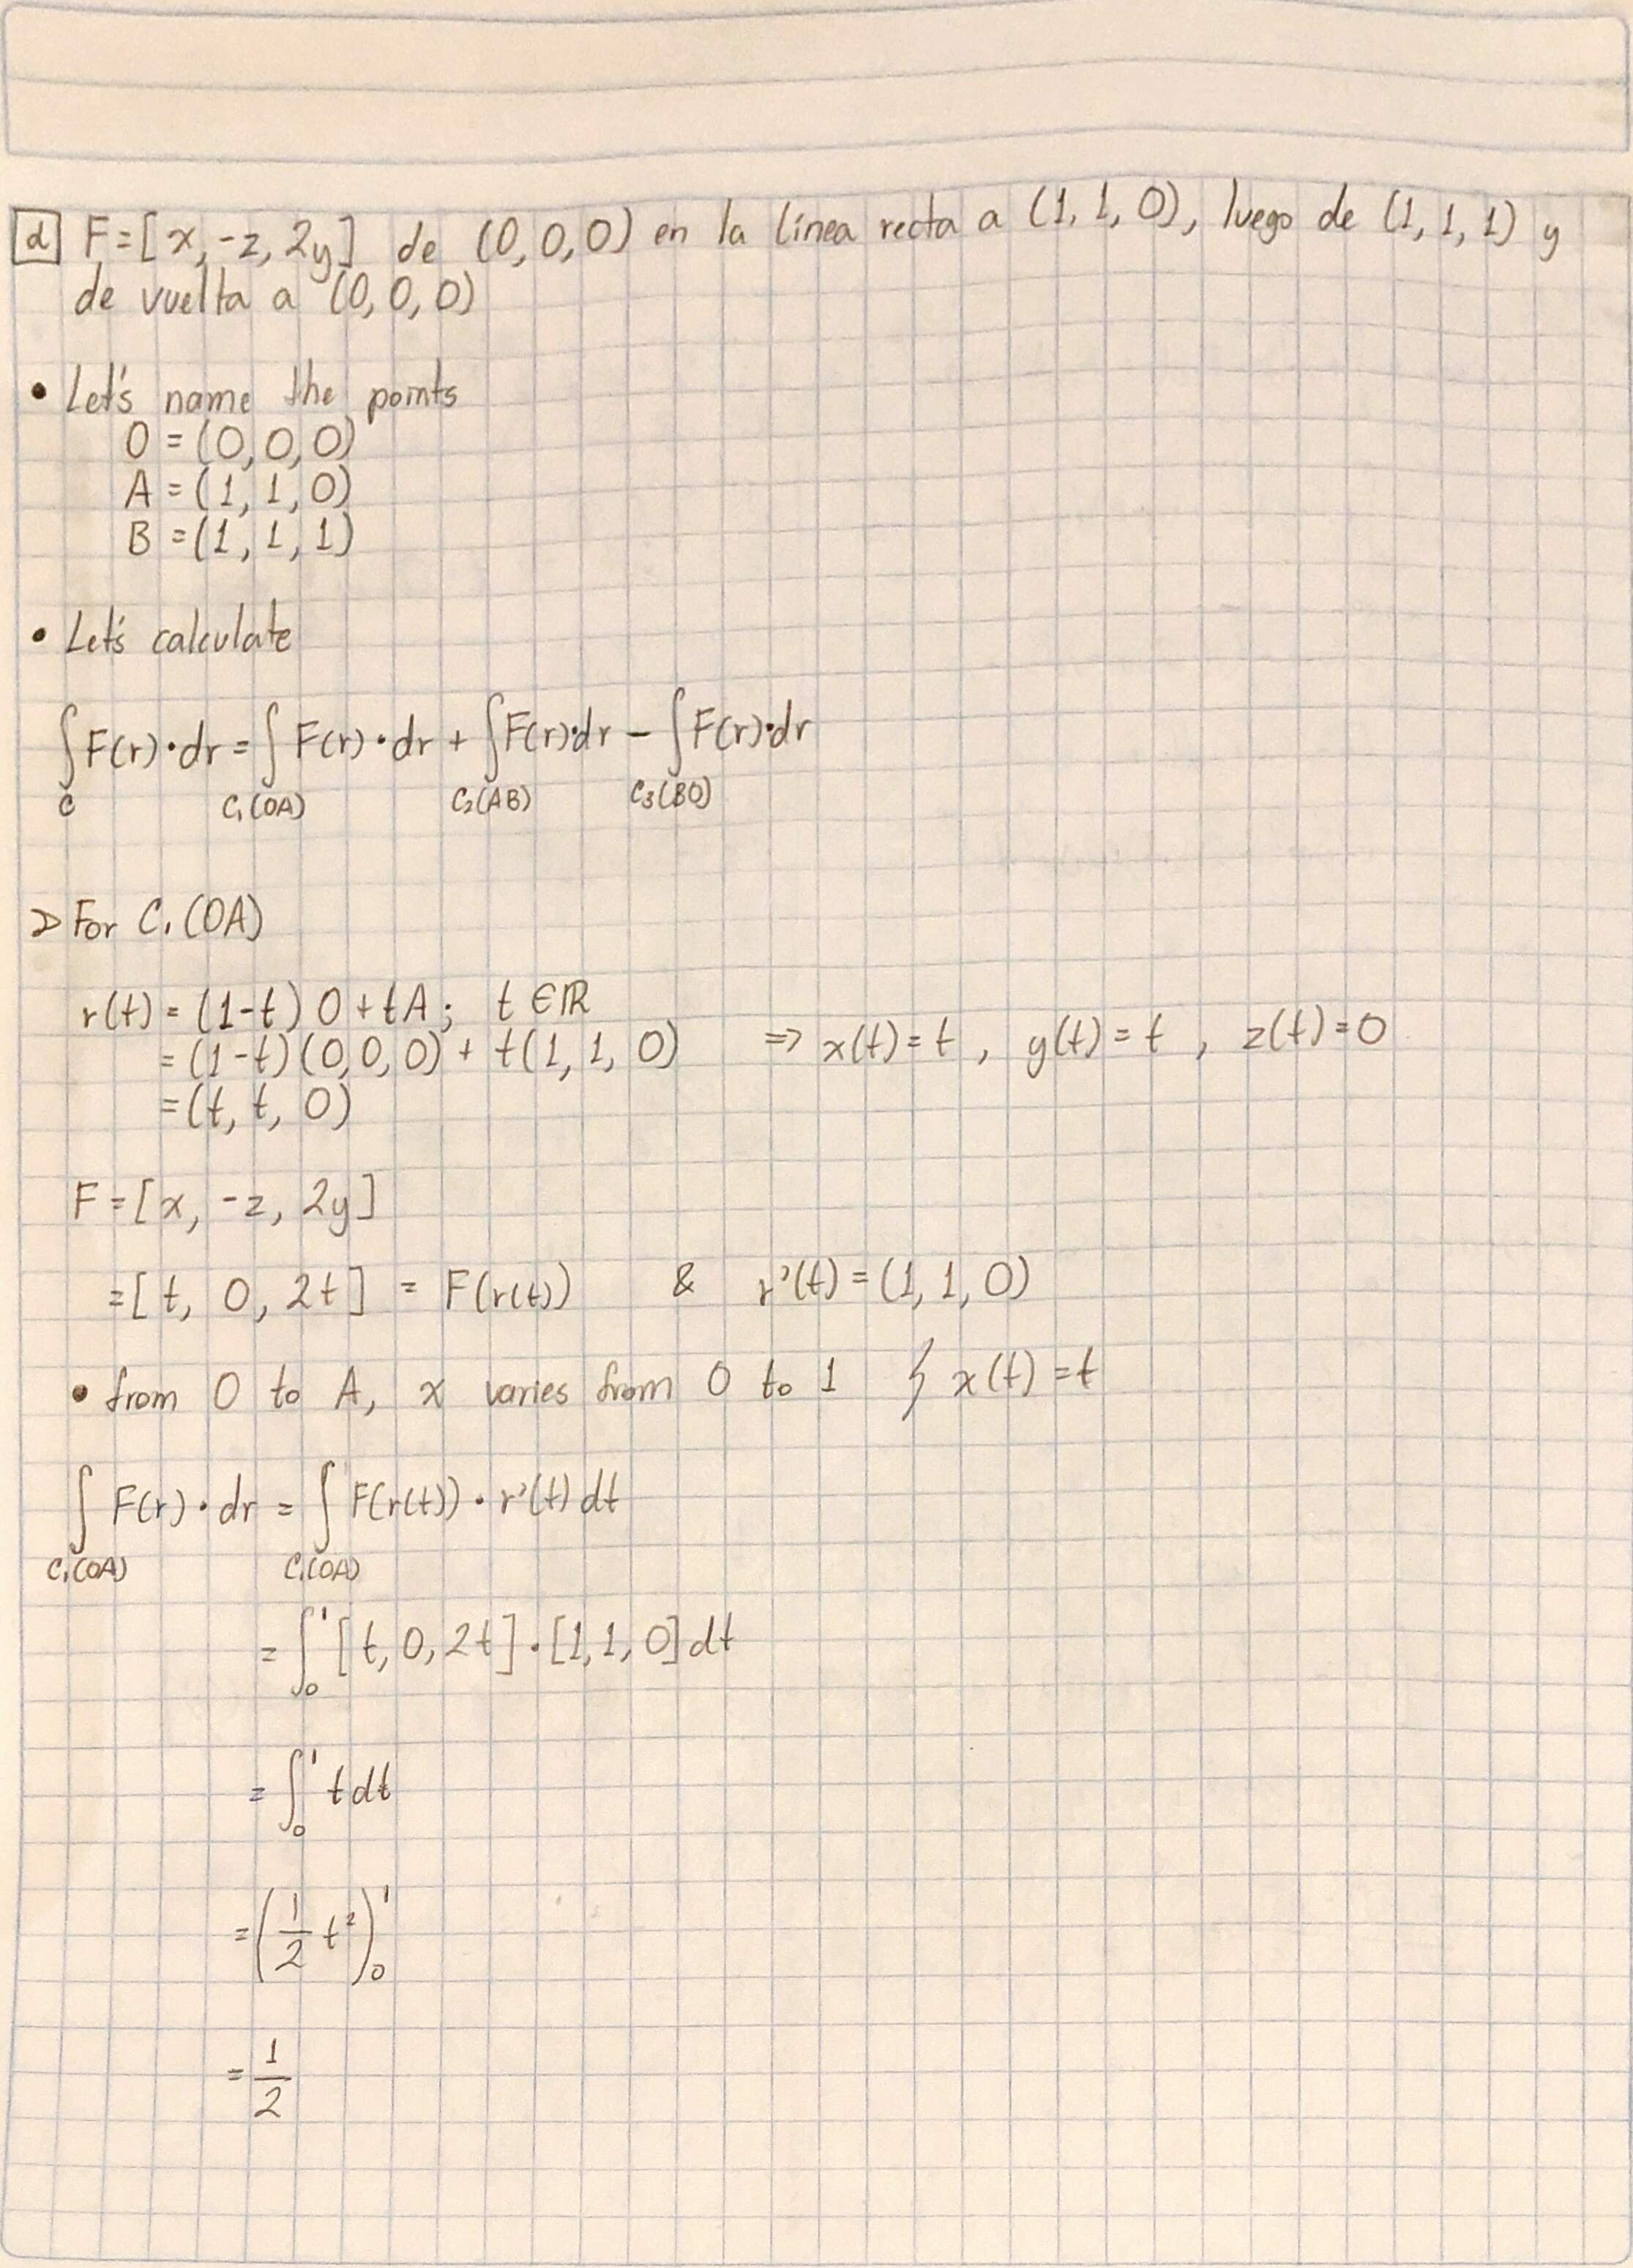 d F = [x, -z, 2y] de (0, 0, 0) en la línea recta a (1, 1, 0), luego de (1, 1, 1) y
de vuelta a (0, 0, 0)
• Let's name the points
O = (0, 0, 0)
A = (1, 1, 0)
B = (1, 1, 1)
• Let's calculate
∫_C F(r)•dr = ∫_C₁(OA) F(r)•dr + ∫_C₂(AB) F(r)•dr − ∫_C₃(BO) F(r)•dr
> For C₁(OA)
r(t) = (1-t) O + tA; t ∈ ℝ
= (1-t)(0, 0, 0) + t(1, 1, 0) ⇒ x(t) = t, y(t) = t, z(t) = 0
= (t, t, 0)
F = [x, -z, 2y]
= [t, 0, 2t] = F(r(t)) & r'(t) = (1, 1, 0)
• from O to A, x varies from 0 to 1 } x(t) = t
∫_C₁(OA) F(r)•dr = ∫_C₁(OA) F(r(t))•r'(t) dt
= ∫₀¹ [t, 0, 2t]•[1, 1, 0] dt
= ∫₀¹ t dt
= (1/2 t²)₀¹
= 1/2